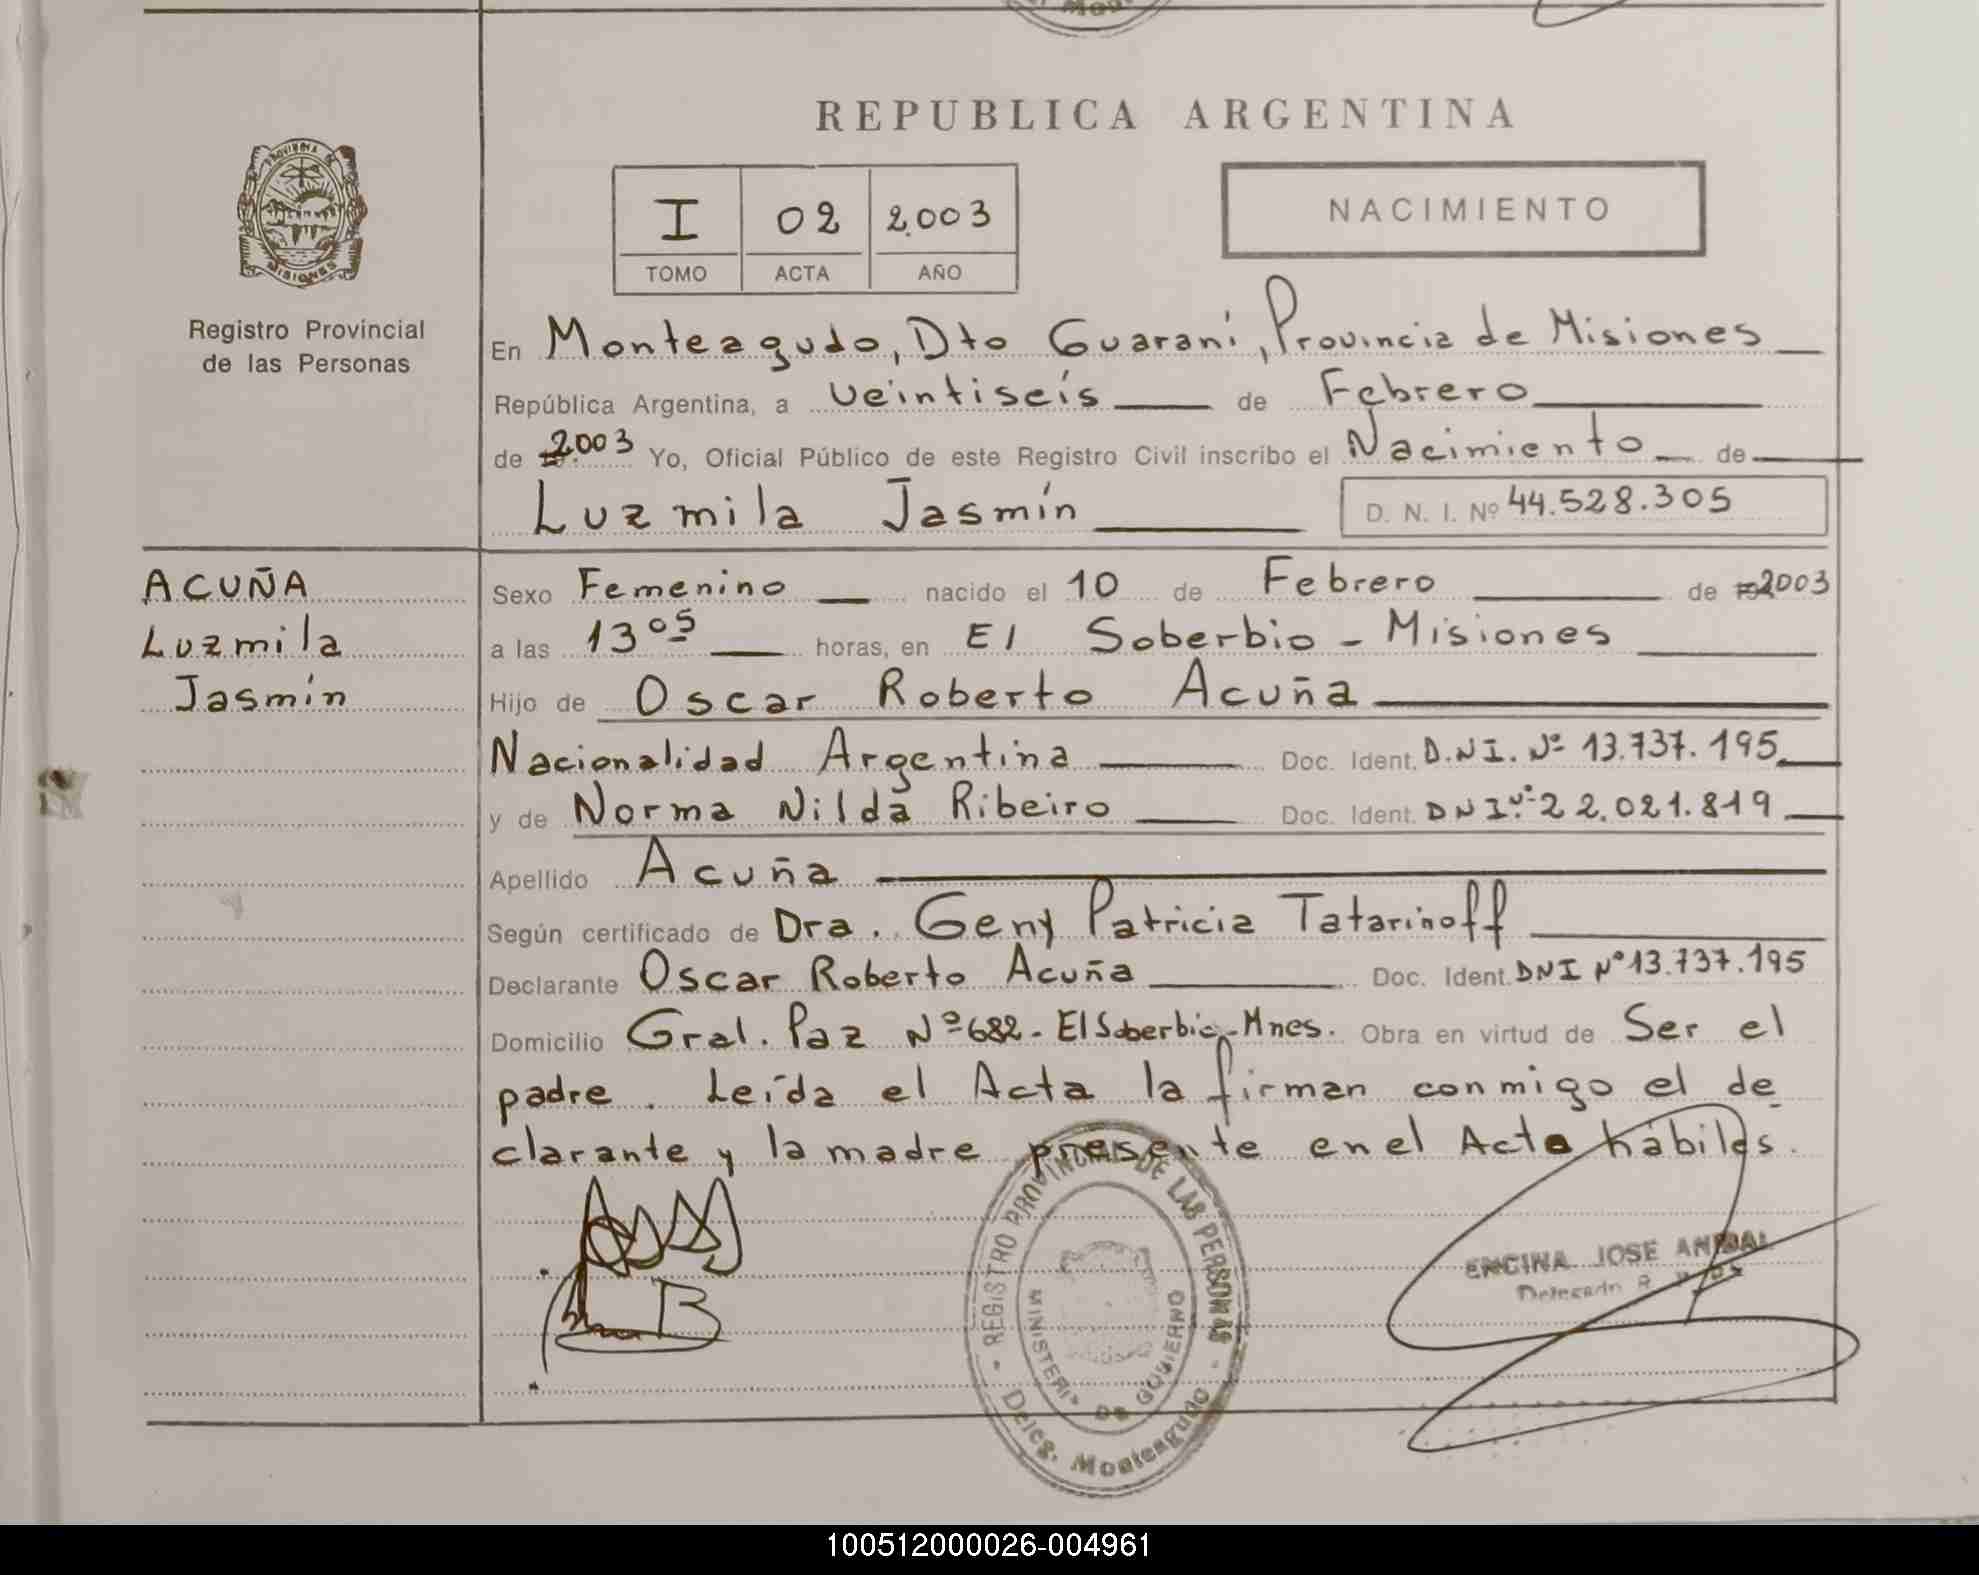 REPUBLICA ARGENTINA
PROVINCIA DE
MISIONES
Registro Provincial
de las Personas
I 02 2.003
TOMO ACTA AÑO
NACIMIENTO
En Monteagudo, Dto Guaraní, Provincia de Misiones
República Argentina, a veintiseís de Febrero
de 2.003 Yo, Oficial Público de este Registro Civil inscribo el Nacimiento de
Luzmila Jasmín D. N. I. Nº 44.528.305
ACUÑA
Luzmila
Jasmín
Sexo Femenino nacido el 10 de Febrero de 2003
a las 13 05 horas, en El Soberbio - Misiones
Hijo de Oscar Roberto Acuña
Nacionalidad Argentina Doc. Ident. D.N.I. Nº 13.737.195
y de Norma Nilda Ribeiro Doc. Ident. DNI Nº 22.021.819
Apellido Acuña
Según certificado de Dra. Geny Patricia Tatarinoff
Declarante Oscar Roberto Acuña Doc. Ident. DNI Nº 13.737.195
Domicilio Gral. Paz Nº 682 - El Soberbio - Mnes. Obra en virtud de Ser el
padre. Leída el Acta la firman conmigo el de
clarante y la madre presente en el Acto hábiles.
REGISTRO PROVINCIAL DE LAS PERSONAS
MINISTERIO DE GOBIERNO
Deleg. Monteagudo
ENCINA JOSE ANIBAL
Delegado R.
100512000026-004961